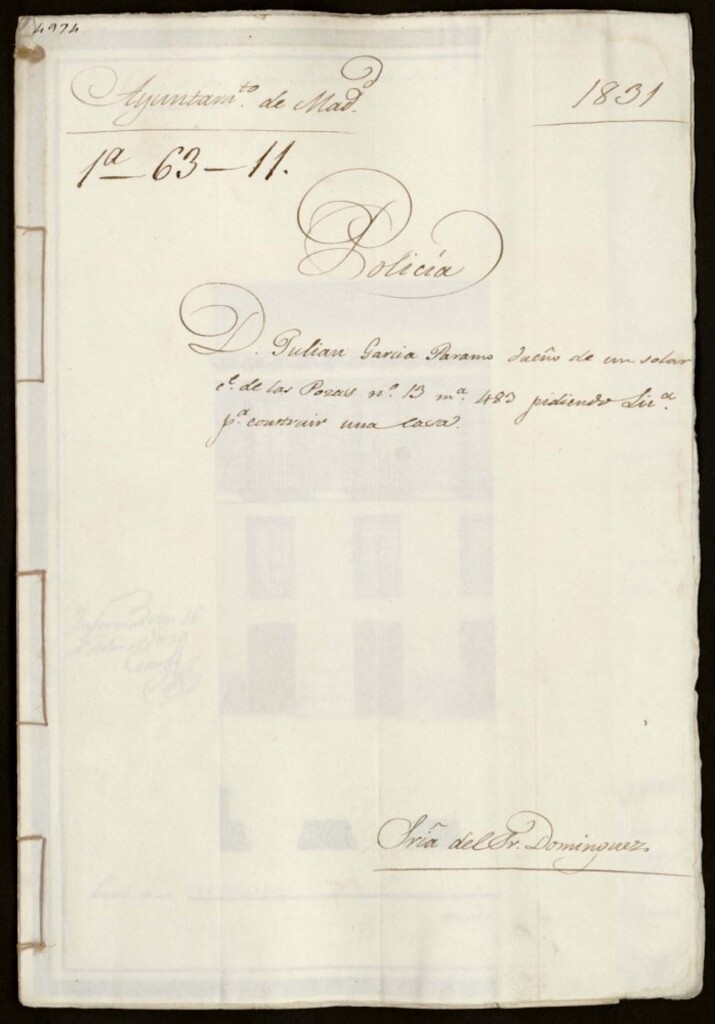 Ayuntam.to de Mad.d
1831
1a 63-11.
Policía
D. Julian Garcia Paramo dueño de un solar
c.e de las Pozas n.o 13 m.a 483 pidiendo Lic.a
p.a construir una casa.
Sría del Sr. Dominguez